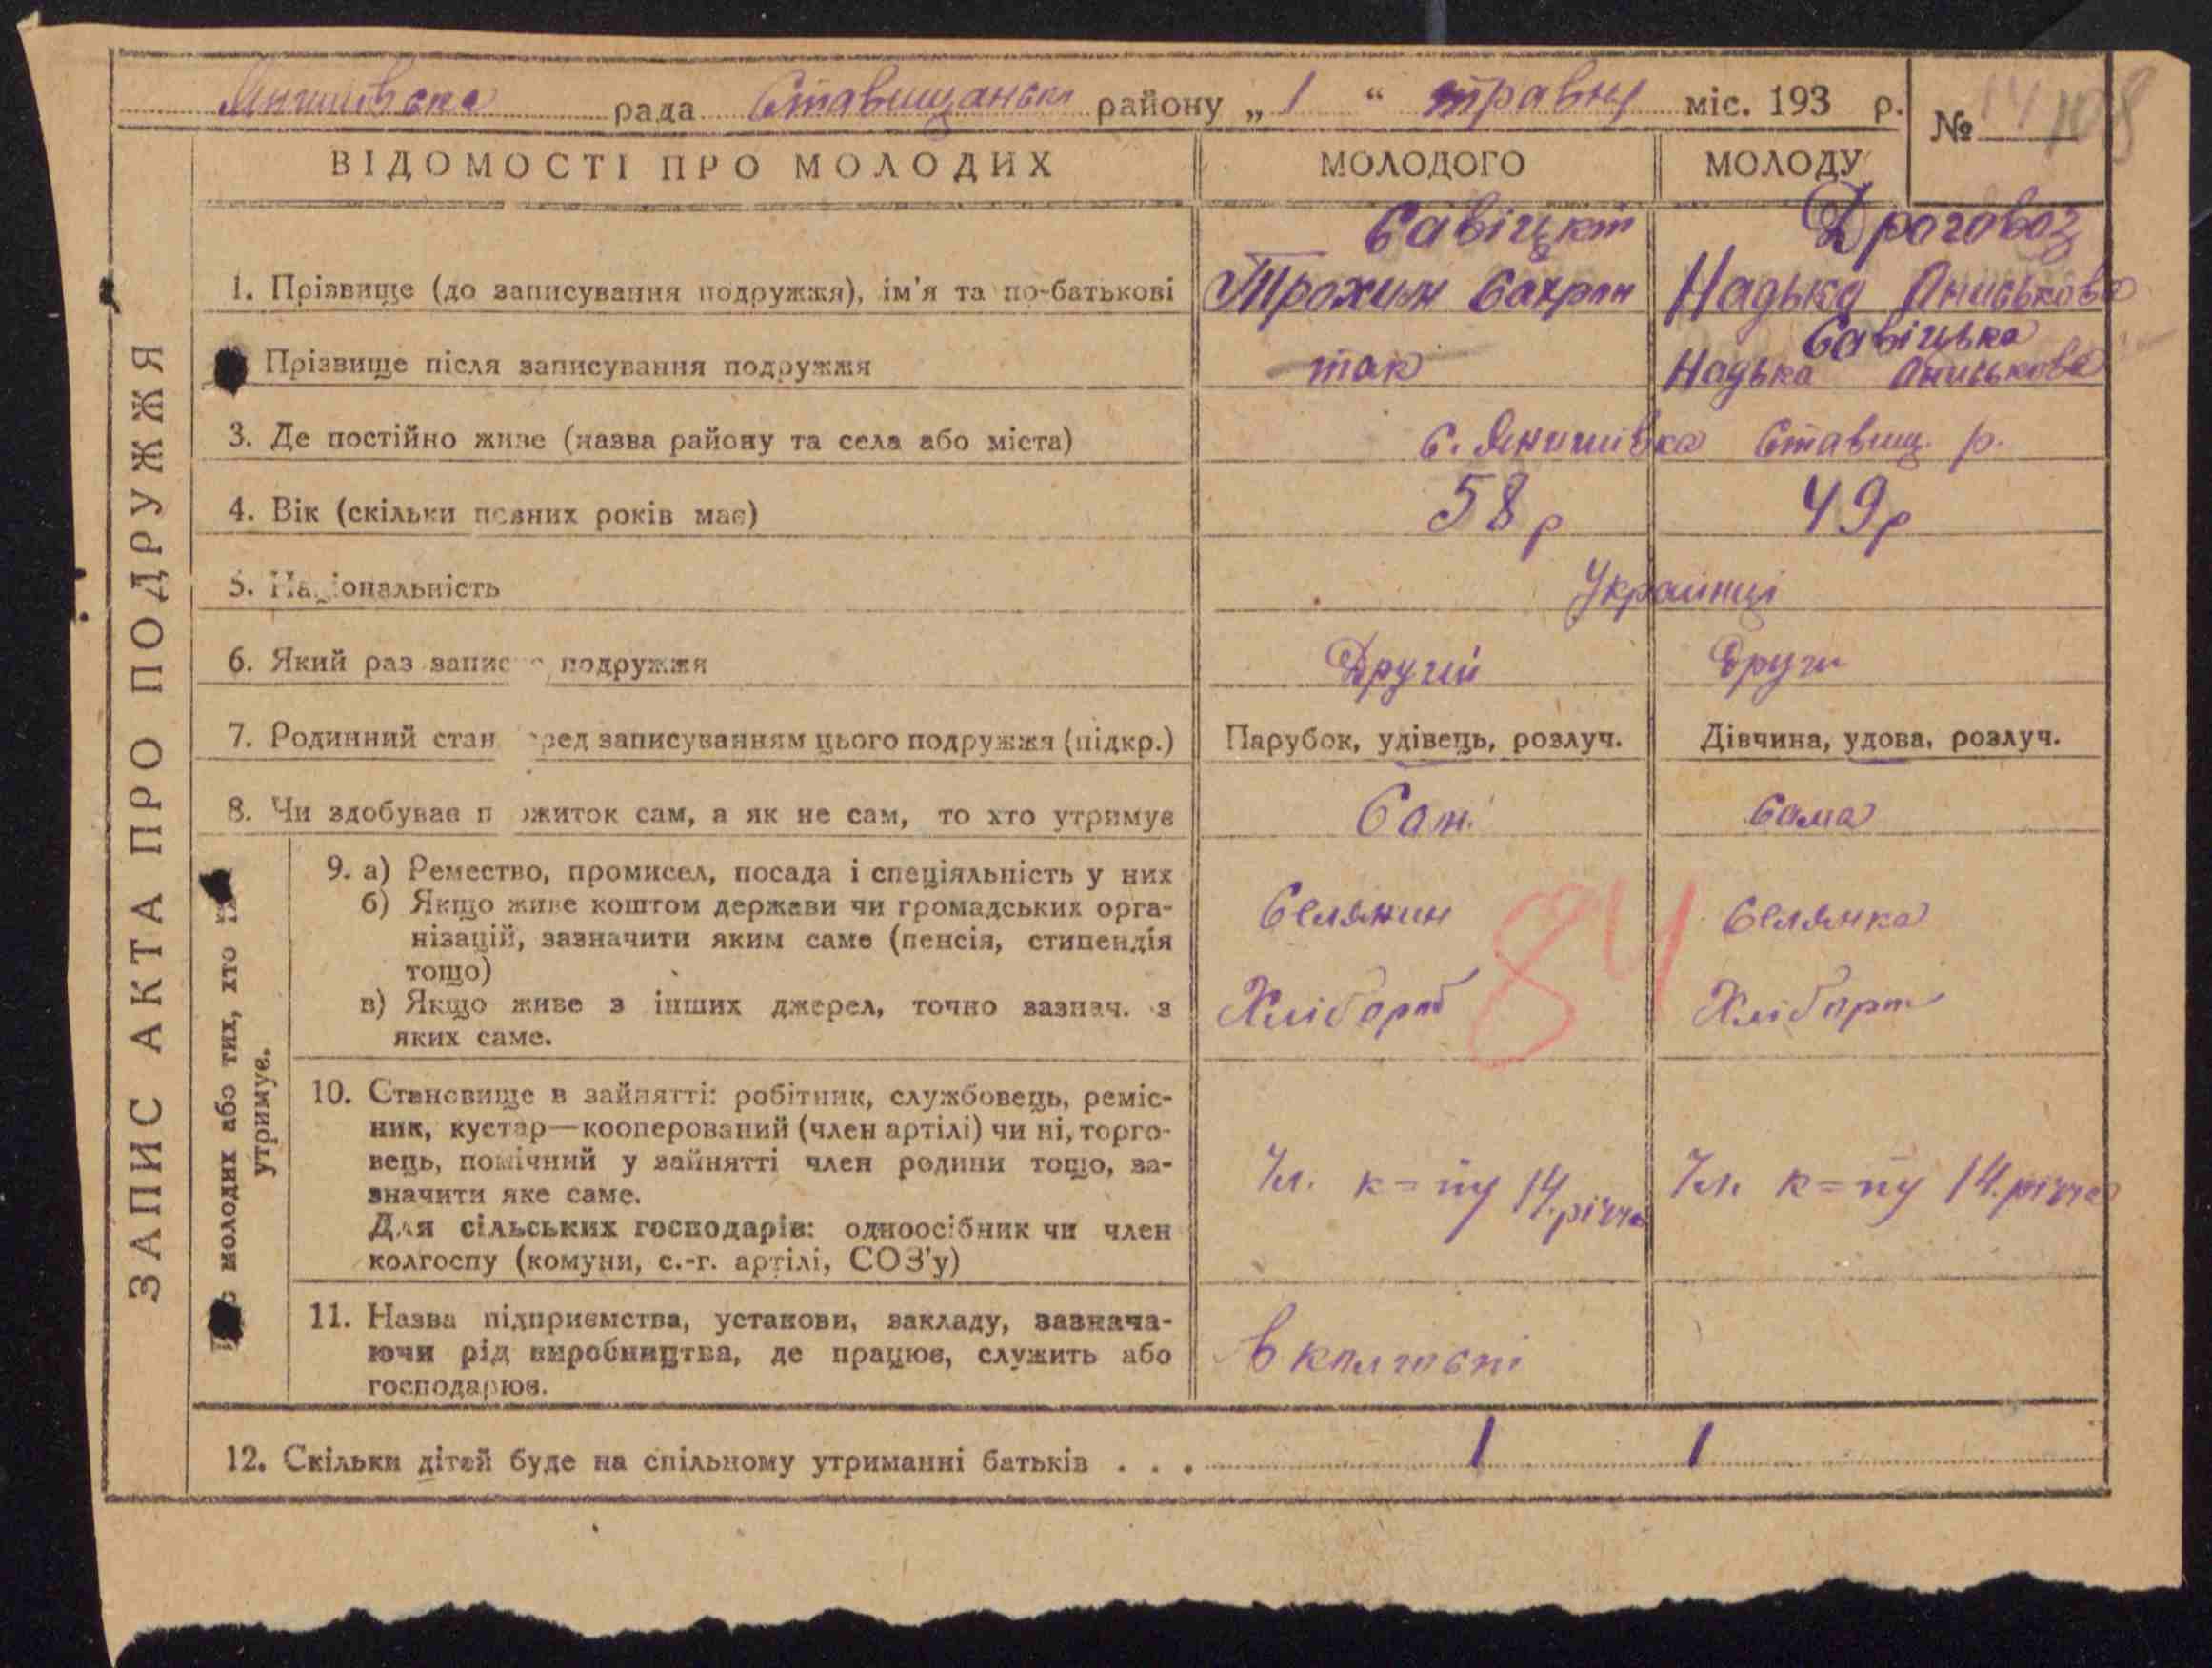 Янишівска рада Ставищанськ району „ 1 “ травня міс. 193 р.
№ 14 108
ВІДОМОСТІ ПРО МОЛОДИХ
МОЛОДОГО
МОЛОДУ
ЗАПИС АКТА ПРО ПОДРУЖЖЯ
1. Прізвище (до записування подружжя), ім'я та по-батькові
Савіцкий
Трохим Сахрон
Дроговоз
Надька Аниськова
Прізвище після записування подружжя
так
Савіцька
Надька Аниськова
3. Де постійно живе (назва району та села або міста)
с. Янишівка Ставищ. р.
4. Вік (скільки повних років має)
58 р
49 р
5. Національність
Українці
6. Який раз запис подружжя
Другий
Други
7. Родинний стан перед записуванням цього подружжя (підкр.)
Парубок, удівець, розлуч.
Дівчина, удова, розлуч.
8. Чи здобуває пожиток сам, а як не сам, то хто утримує
Сам.
Сама
молодих або тих, хто їх
утримує.
9. а) Ремество, промисел, посада і спеціяльність у них
б) Якщо живе коштом держави чи громадських орга-
нізацій, зазначити яким саме (пенсія, стипендія
тощо)
в) Якщо живе з інших джерел, точно зазнач. з
яких саме.
Селянин
Хлібороб
Селянка
Хлібороб
84
10. Становище в зайнятті: робітник, службовець, реміс-
ник, кустар—кооперований (член артілі) чи ні, торго-
вець, помічний у зайнятті член родини тощо, за-
значити яке саме.
Для сільських господарів: одноосібник чи член
колгоспу (комуни, с.-г. артілі, СОЗ'у)
Чл. к=пу 14.річчя
Чл. к=пу 14.річчя
11. Назва підприємства, установи, закладу, зазнача-
ючи рід виробництва, де працює, служить або
господарює.
В колгоспі
12. Скільки дітей буде на спільному утриманні батьків . . .
1 1